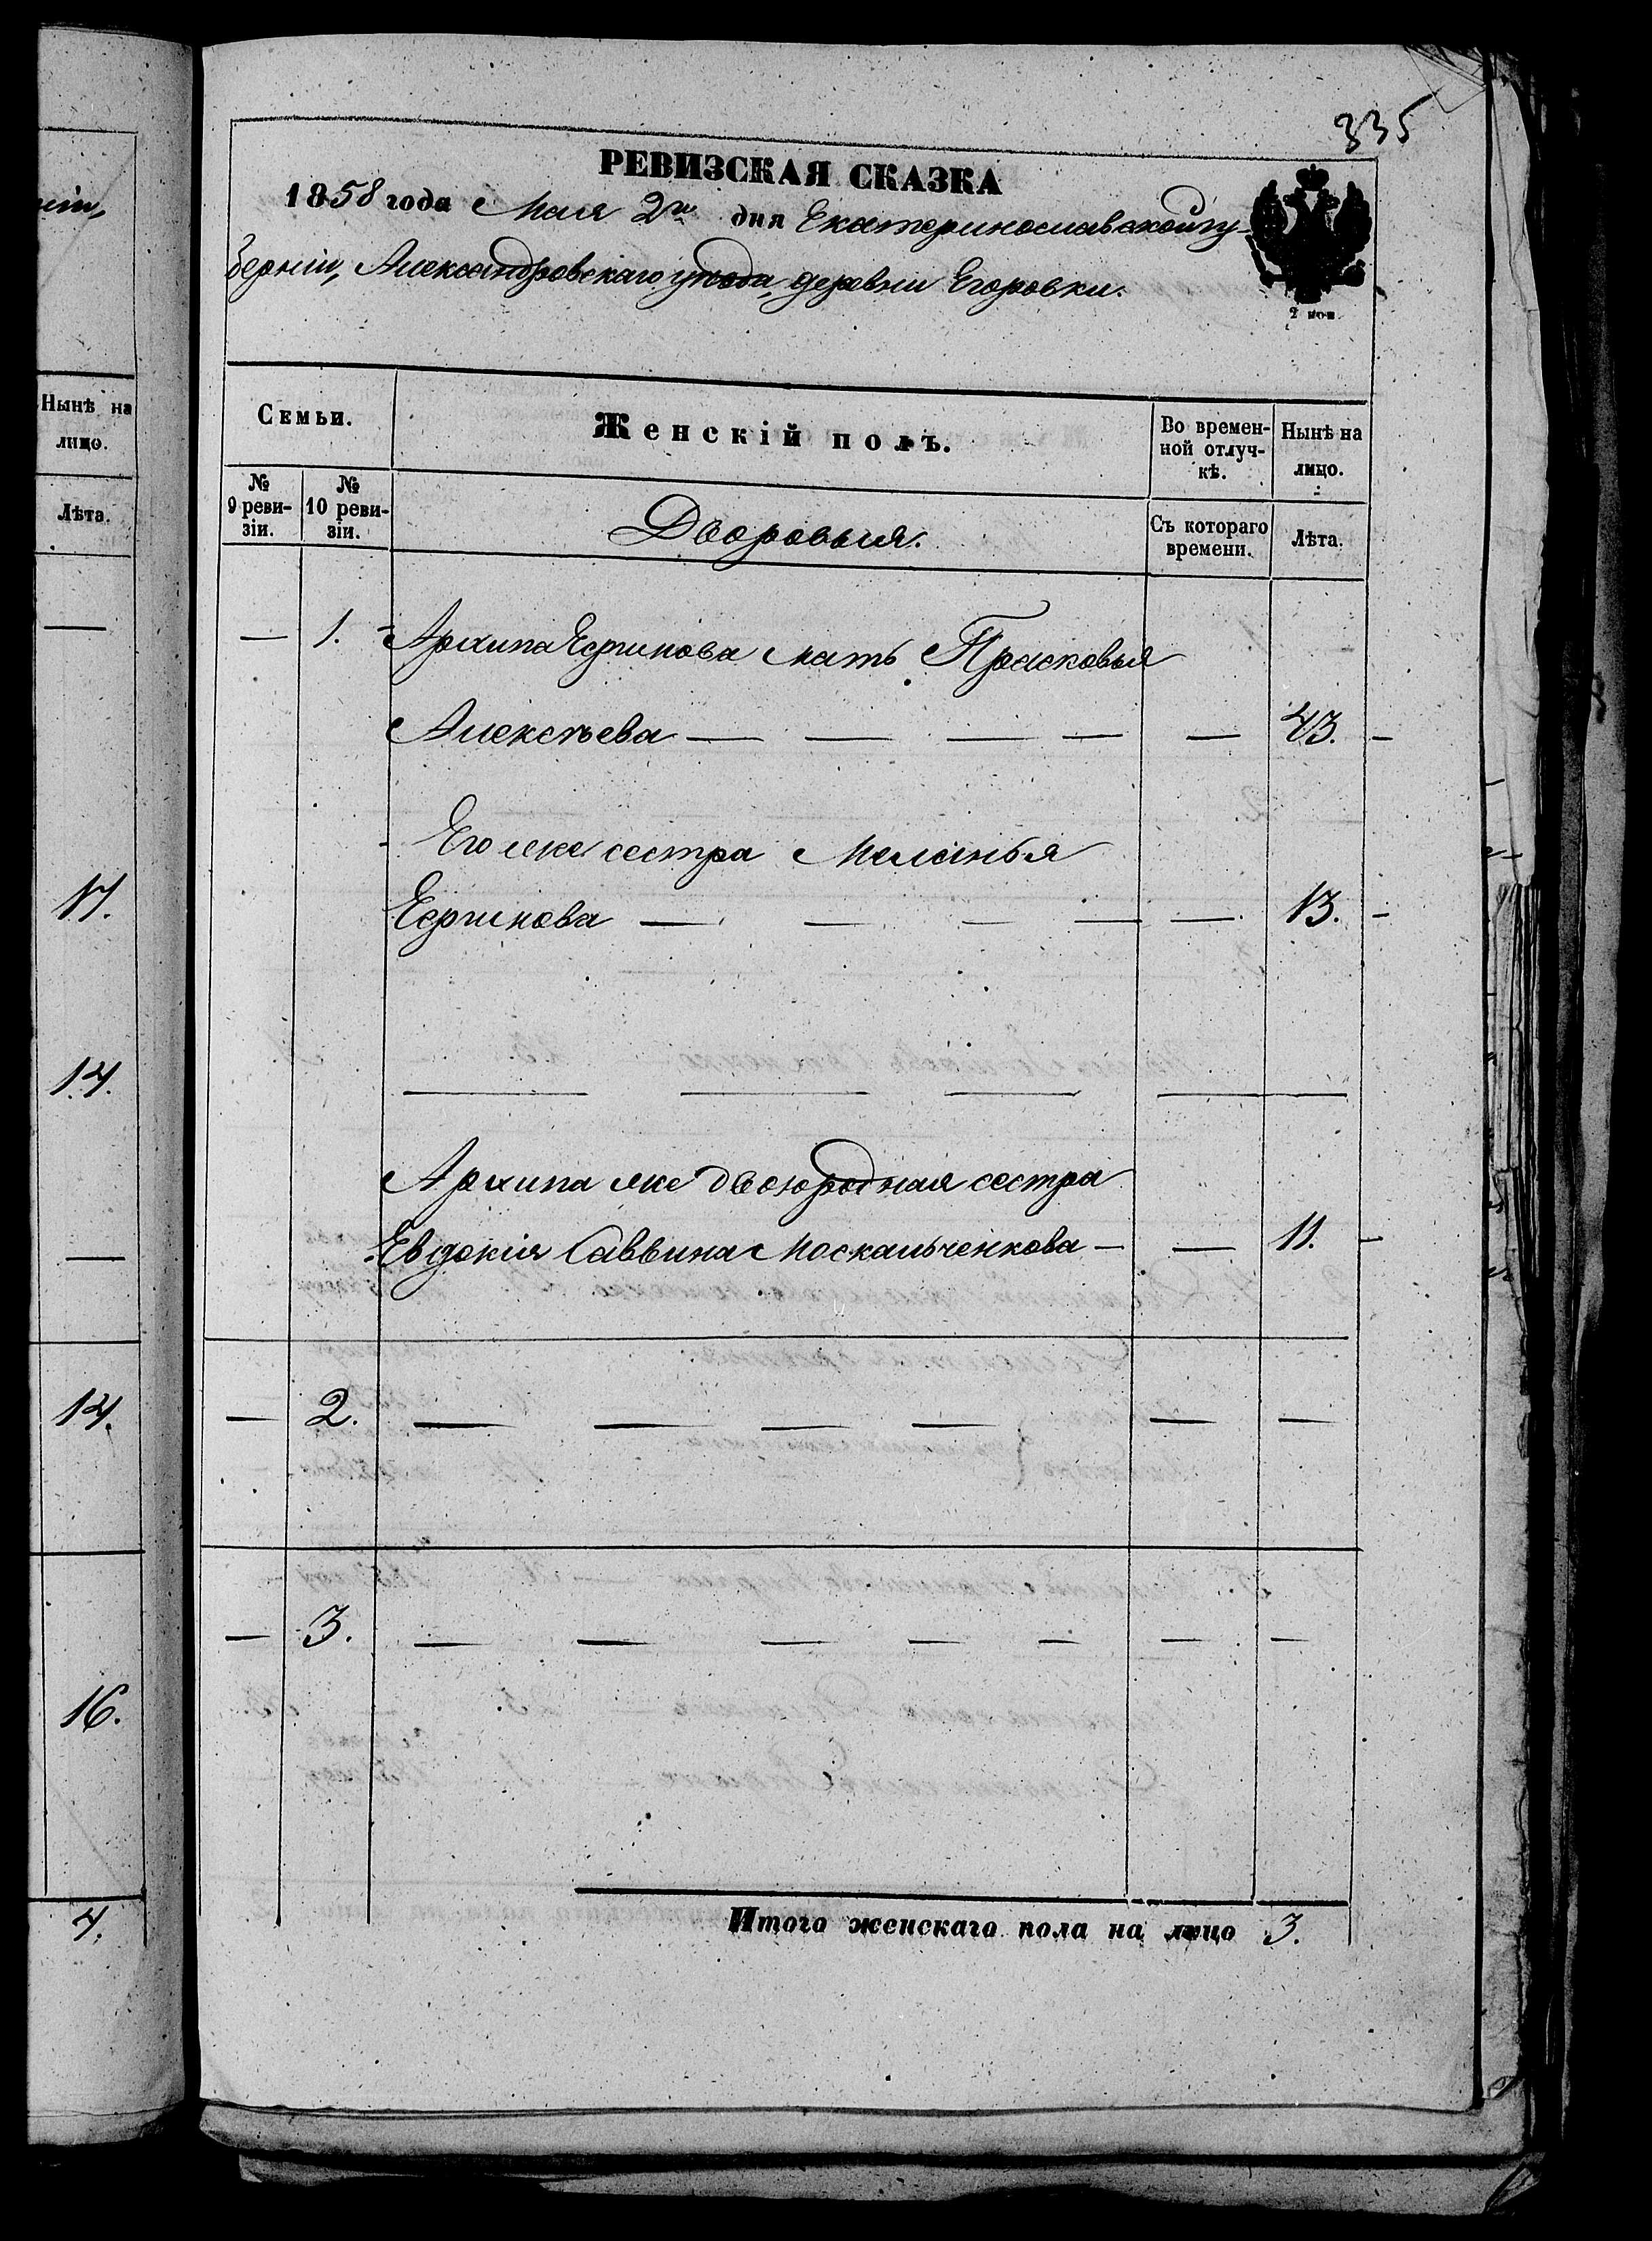 ніи,
Нынѣ на
лицо.
Лѣта.
17.
14.
14.
16.
4.
335
РЕВИЗСКАЯ СКАЗКА
1858 года Мая 2го дня Екатеринославской гу-
берніи, Александровскаго уѣзда, деревни Егоровки.
2 коп.
Семьи.
Женскій полъ.
Во времен-
ной отлуч-
кѣ.
Нынѣ на
лицо.
№
9 реви-
зіи.
№
10 реви-
зіи.
Дворовыя.
Съ котораго
времени.
Лѣта.
— 1. Архипа Ефимова мать Прасковья
Алексѣева — — — — — 43.
Его же сестра Меланья
Ефимова — — — — — 13.
Архипа же двоюродная сестра
Евдокія Саввина Москальченкова — — 11.
— 2. — — — — — —
— 3. — — — — — — —
Итого женскаго пола на лицо 3.